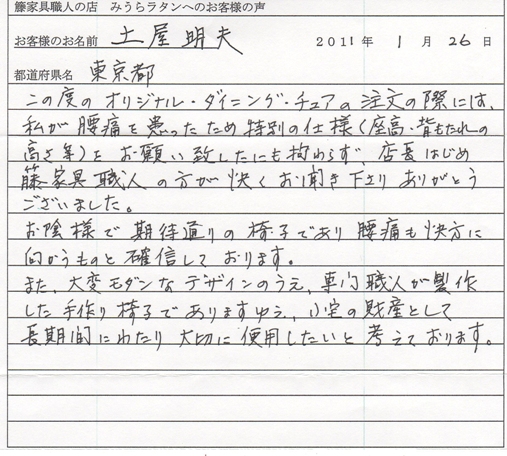 籐家具職人の店 みうらラタンへのお客様の声
お客様のお名前 土屋明夫 2011年 1月 26日
都道府県名 東京都
この度のオリジナル・ダイニング・チュアの注文の際には、
私が腰痛を患ったため特別の仕様(座高・背もたれの
高さ等)をお願い致したにも拘わらず、店長はじめ
籐家具職人の方が快くお聞き下さりありがとう
ございました。
お陰様で期待通りの椅子であり腰痛も快方に
向かうものと確信しております。
また、大変モダンなデザインのうえ、専門職人が製作
した手作り椅子でありますゆえ、小宅の財産として
長期間にわたり大切に使用したいと考えております。